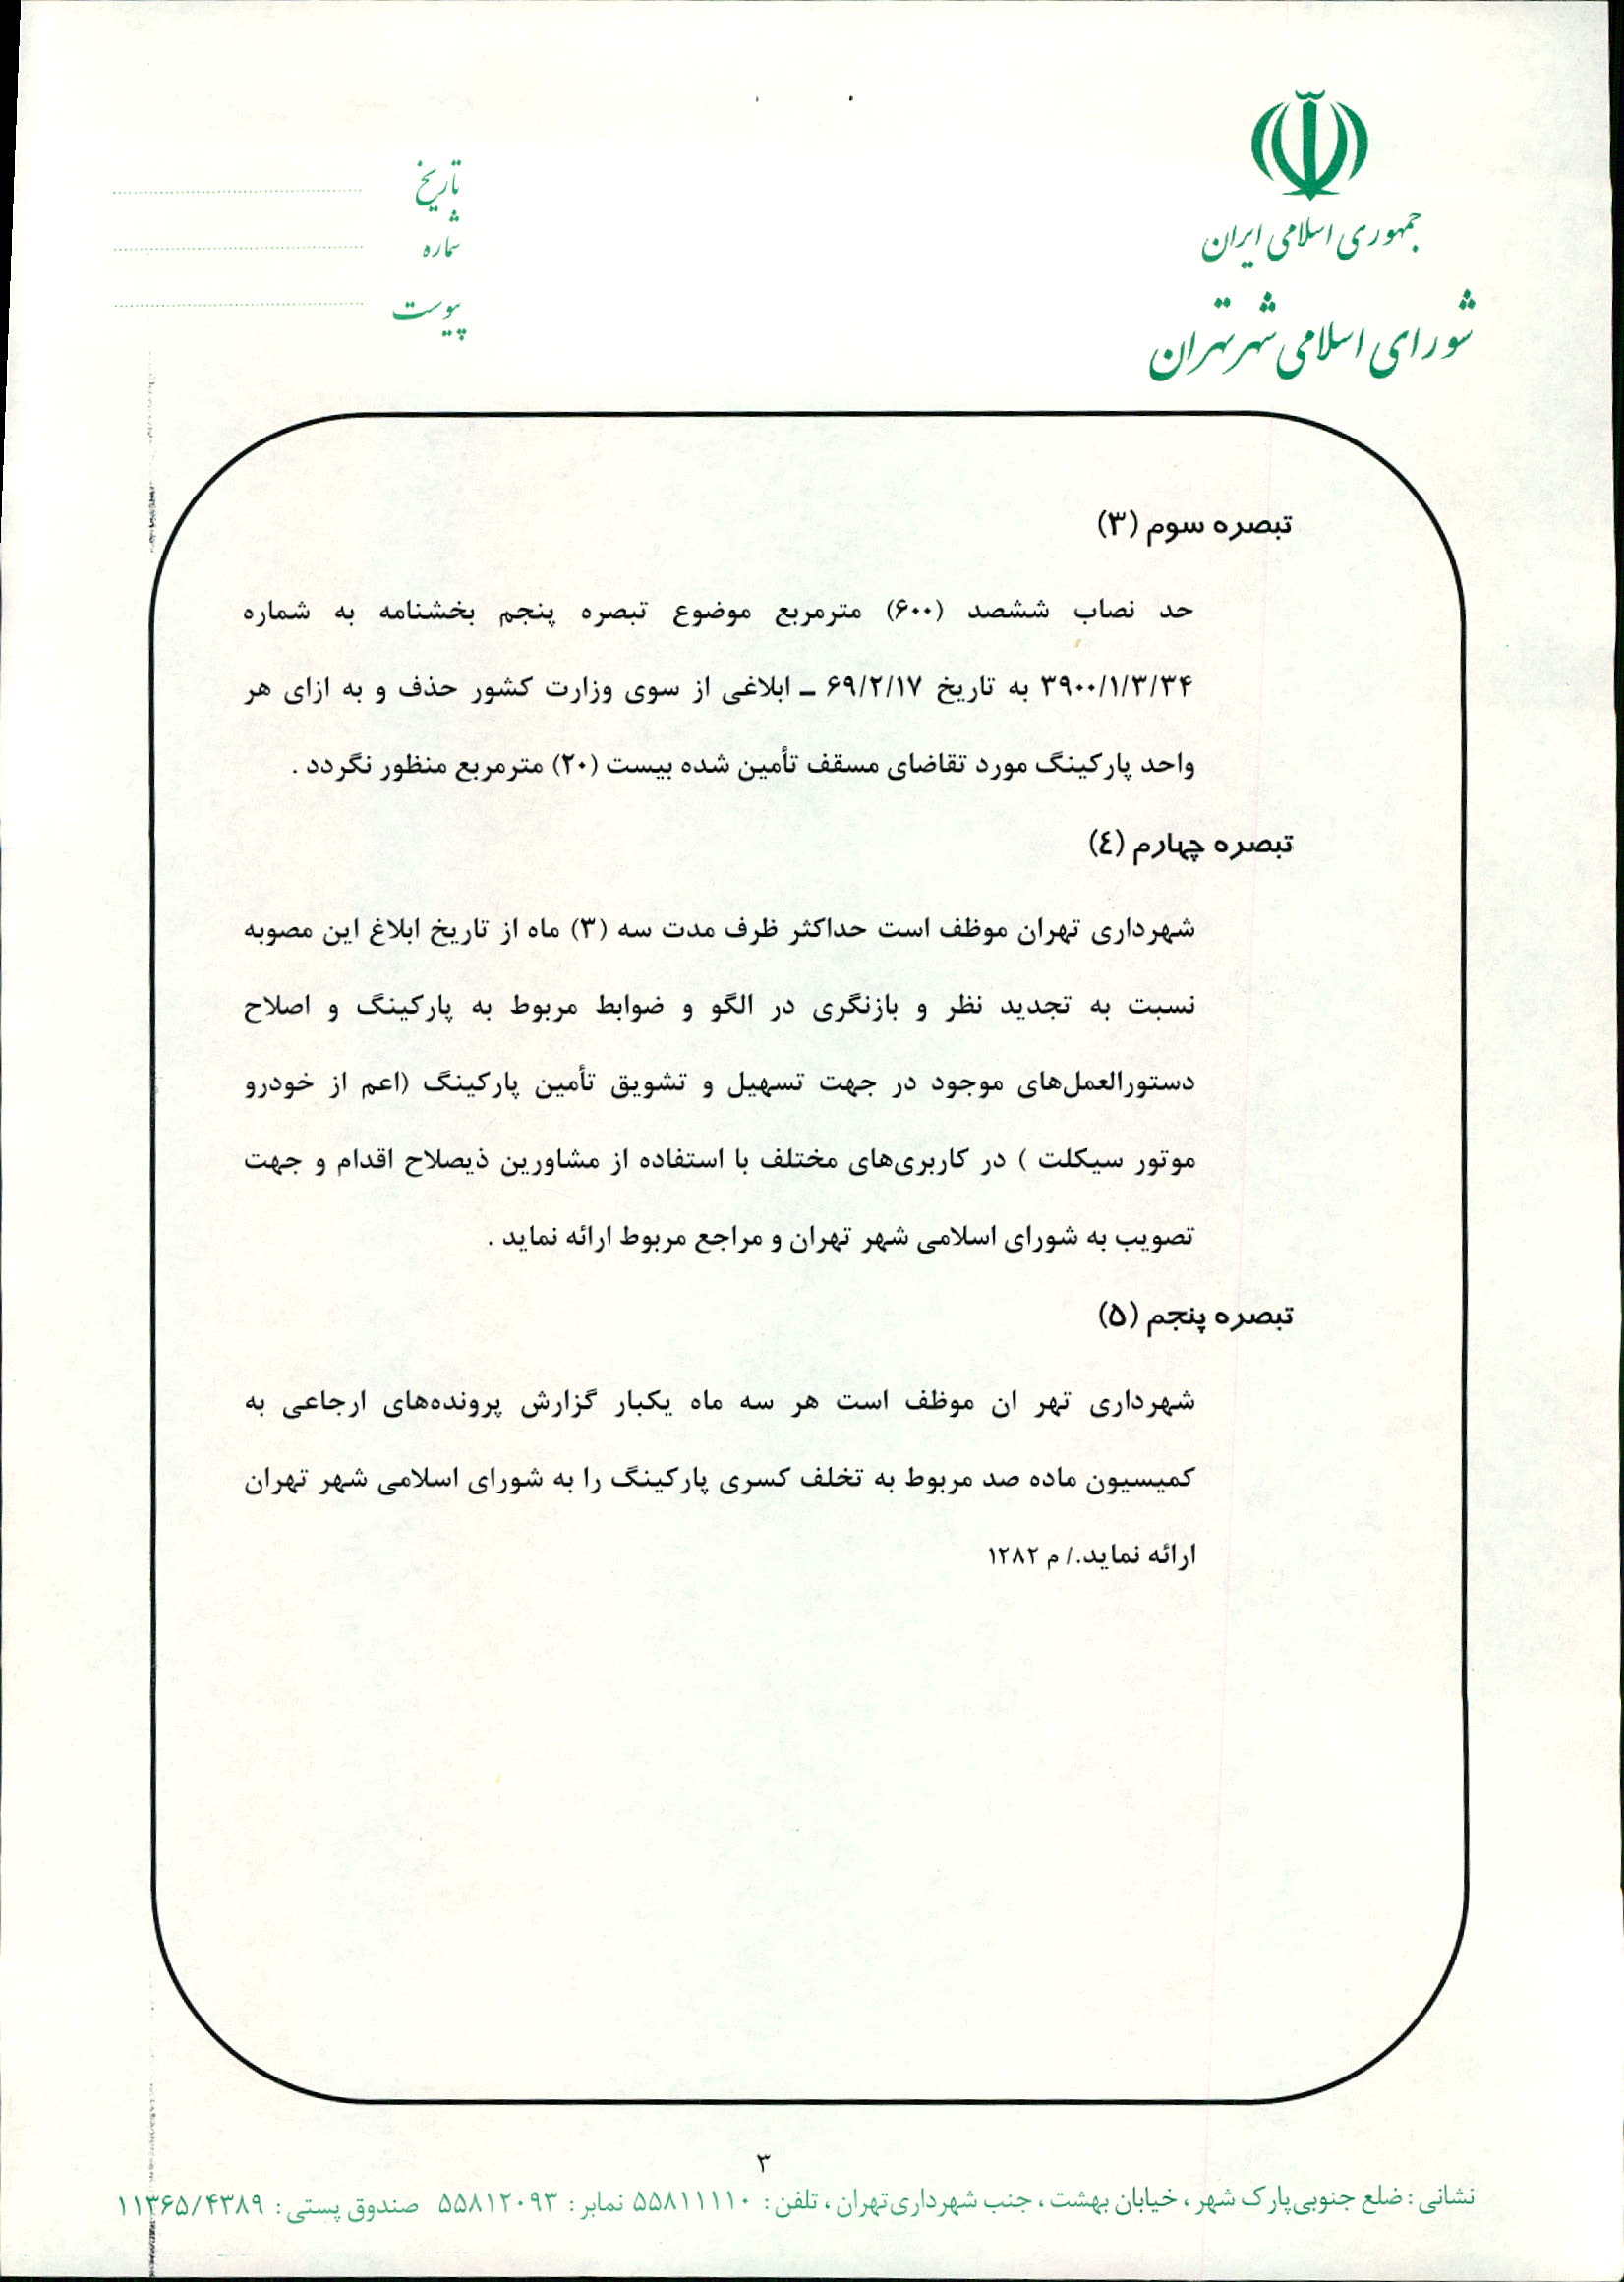 جمهوری اسلامی ایران
شورای اسلامی شهر تهران
تاریخ
شماره
پیوست
تبصره سوم (۳)
حد نصاب ششصد (۶۰۰) مترمربع موضوع تبصره پنجم بخشنامه به شماره
۳۹۰۰/۱/۳/۳۴ به تاریخ ۶۹/۲/۱۷ ـ ابلاغی از سوی وزارت کشور حذف و به ازای هر
واحد پارکینگ مورد تقاضای مسقف تأمین شده بیست (۲۰) مترمربع منظور نگردد .
تبصره چهارم (٤)
شهرداری تهران موظف است حداکثر ظرف مدت سه (۳) ماه از تاریخ ابلاغ این مصوبه
نسبت به تجدید نظر و بازنگری در الگو و ضوابط مربوط به پارکینگ و اصلاح
دستورالعمل‌های موجود در جهت تسهیل و تشویق تأمین پارکینگ (اعم از خودرو
موتور سیکلت ) در کاربری‌های مختلف با استفاده از مشاورین ذیصلاح اقدام و جهت
تصویب به شورای اسلامی شهر تهران و مراجع مربوط ارائه نماید .
تبصره پنجم (۵)
شهرداری تهر ان موظف است هر سه ماه یکبار گزارش پرونده‌های ارجاعی به
کمیسیون ماده صد مربوط به تخلف کسری پارکینگ را به شورای اسلامی شهر تهران
ارائه نماید./ م ۱۲۸۲
۳
نشانی : ضلع جنوبی پارک شهر ، خیابان بهشت ، جنب شهرداری تهران ، تلفن : ۵۵۸۱۱۱۱۰ نمابر : ۵۵۸۱۲۰۹۳ صندوق پستی : ۱۱۳۶۵/۴۳۸۹